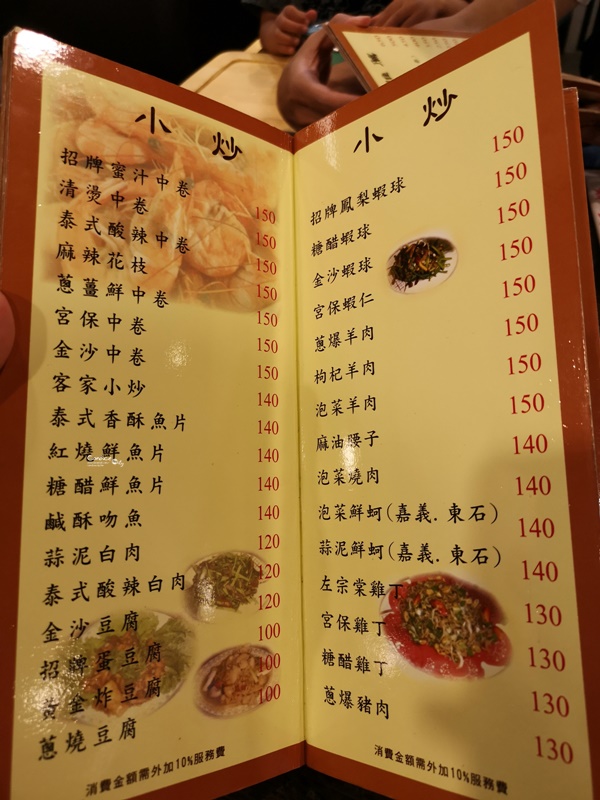 小炒
招牌蜜汁中卷 150
清燙中卷 150
泰式酸辣中卷 150
麻辣花枝 150
蔥薑鮮中卷 150
宮保中卷 150
金沙中卷 150
客家小炒 140
泰式香酥魚片 140
紅燒鮮魚片 140
糖醋鮮魚片 140
鹹酥吻魚 140
蒜泥白肉 120
泰式酸辣白肉 120
金沙豆腐 120
招牌蛋豆腐 100
黃金炸豆腐 100
蔥燒豆腐 100
消費金額需外加10%服務費
小炒
150
招牌鳳梨蝦球 150
糖醋蝦球 150
金沙蝦球 150
宮保蝦仁 150
蔥爆羊肉 150
枸杞羊肉 150
泡菜羊肉 150
麻油腰子 140
泡菜燒肉 140
泡菜鮮蚵(嘉義.東石) 140
蒜泥鮮蚵(嘉義.東石) 140
左宗棠雞丁 130
宮保雞丁 130
糖醋雞丁 130
蔥爆豬肉 130
消費金額需外加10%服務費